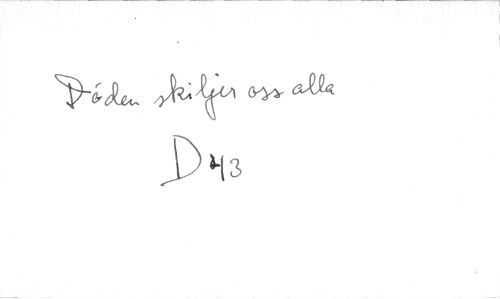 Döden skiljer oss alla
D 43